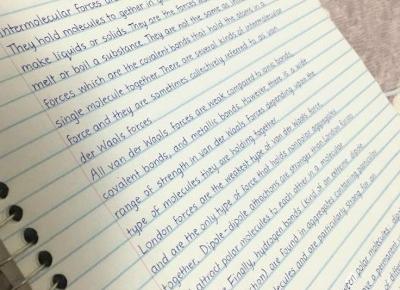 intermolecular forces are
They hold molecules to gether in
make liquids or solids. They are the forces
melt or boil a substance. They are not the same as
forces which are the covalent bonds that hold the atoms in a
single molecule together. There are several kinds of intermolecular
force and they are sometimes collectively referred to as van
der Waals forces
All van der Waals forces are weak compared to ionic bonds,
covalent bonds, and metallic bonds. However, there is a wide
range of strength in van der Waals forces depending upon the
type of molecules they are holding together
London forces are the weakest type of van der Waals force
and are the only type of force that holds nonpolar aggregates
together. Dipole-dipole attractions are stronger than London forces
attract polar molecules to each other in a molecular
Finally, hydrogen bonds (kind of an extreme dipole
are found in aggregates containing particular
molecules and are particularly strong for an
between polar molecules,
have a permanent
of different